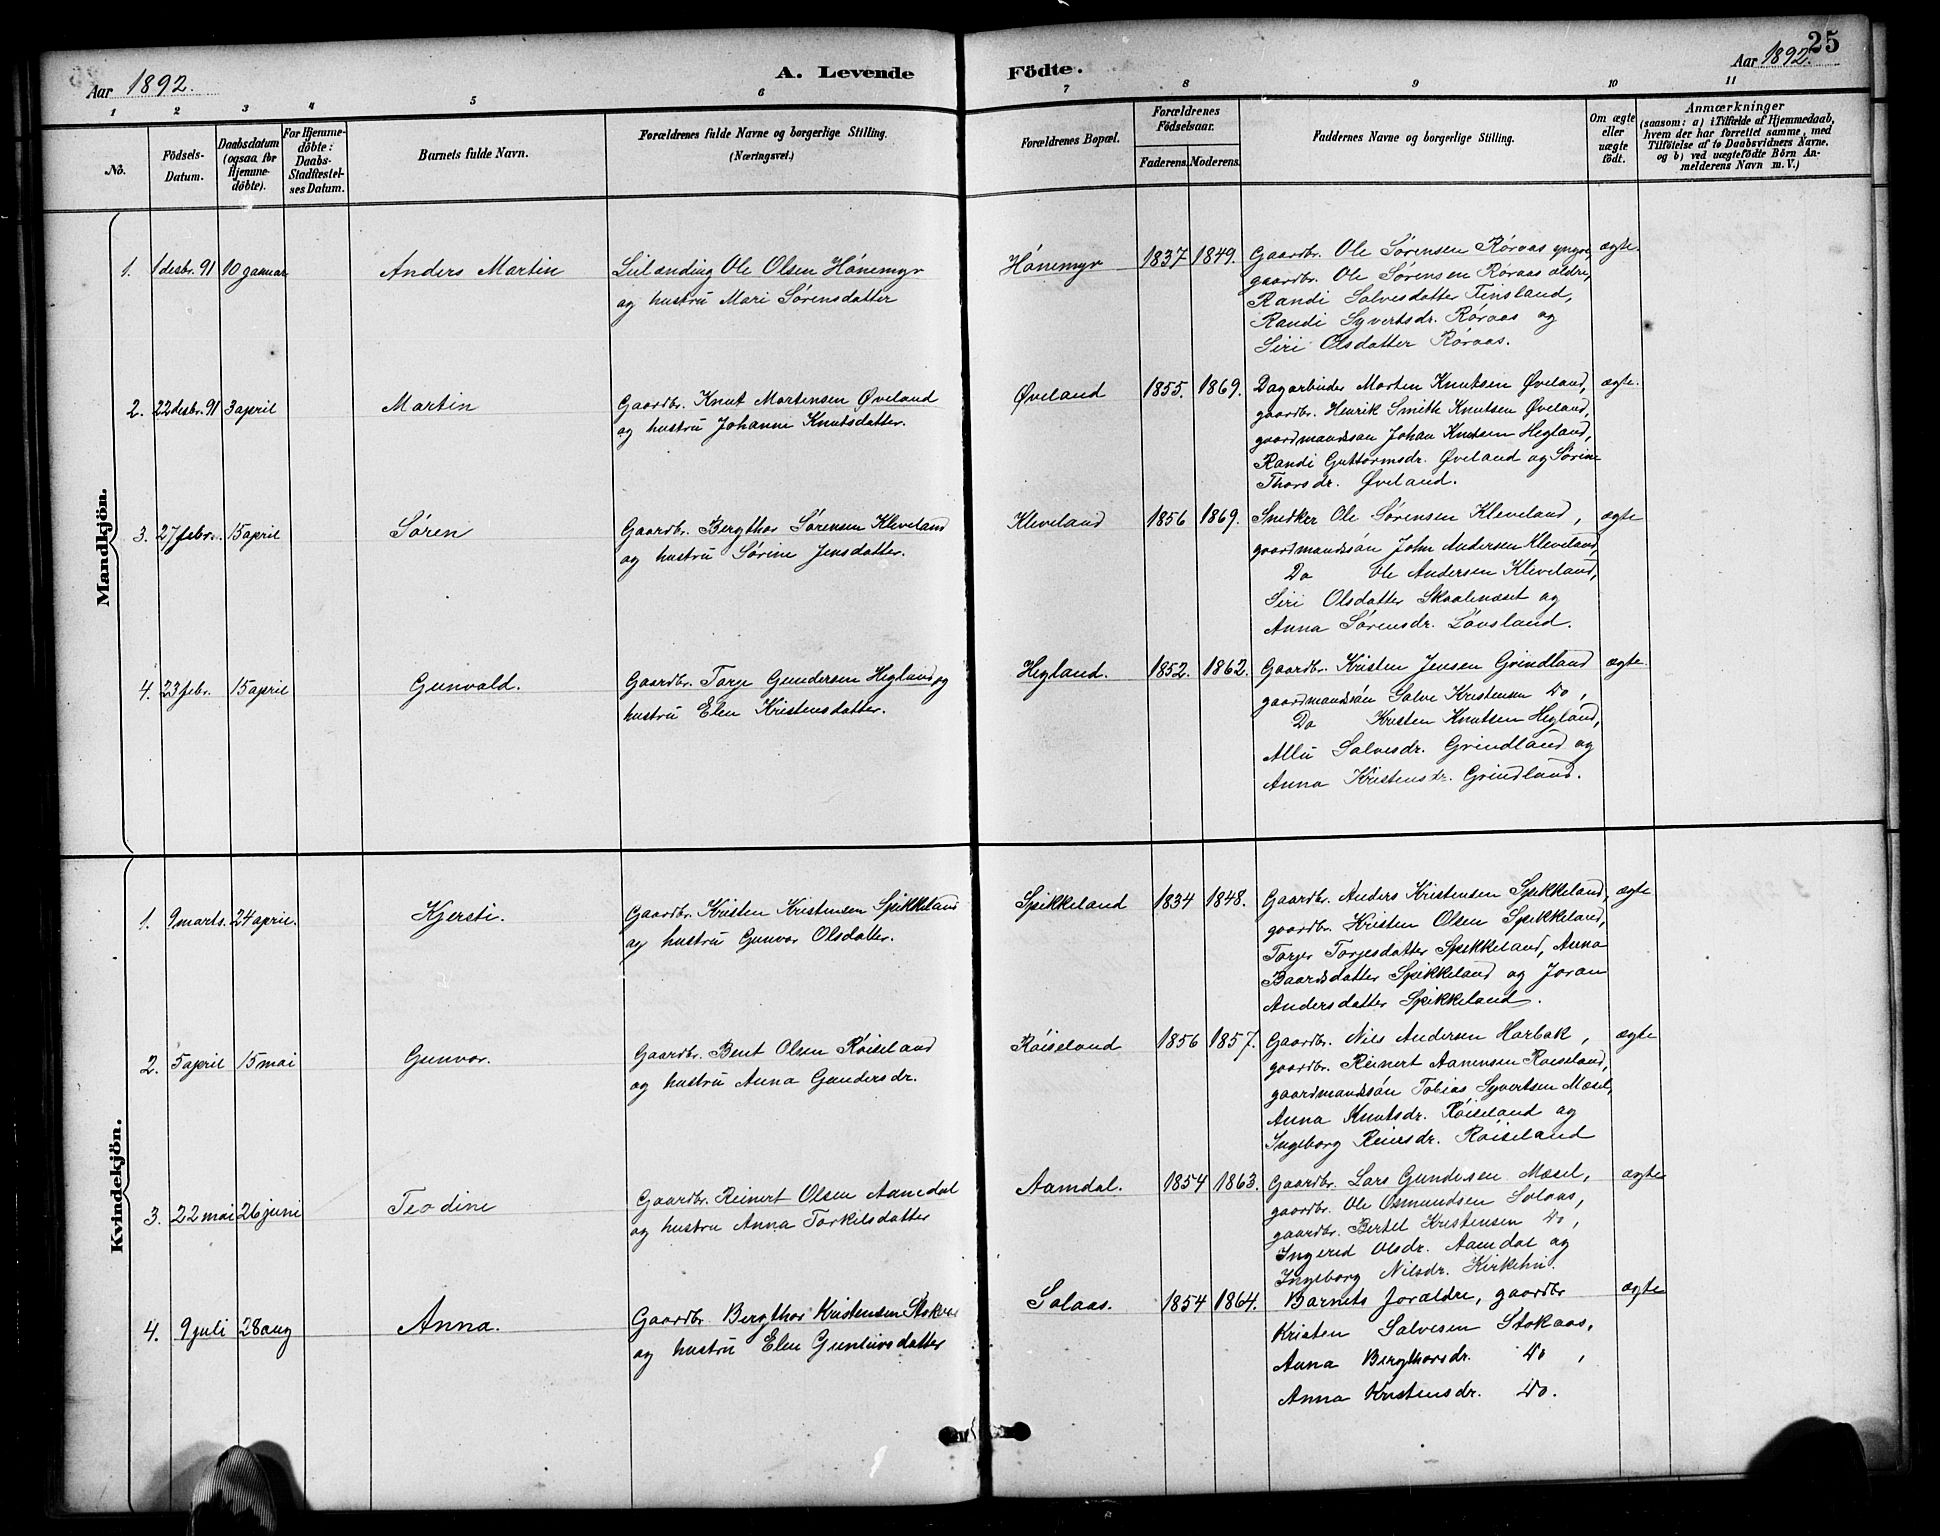 Aar 1892.
A. Levende
Födte.
Aar 1892.
25
1
2
3
4
5
6
7
8
9
10
11
No.
Födsels-
Datum.
Daabsdatum
(ogsaa for
Hjemme-
döbte).
For Hjemme-
döbte:
Daabs-
Stadfæstel-
ses Datum.
Barnets fulde Navn.
Forældrenes fulde Navne og borgerlige Stilling.
(Næringsvei.)
Forældrenes Bopæl.
Forældrenes
Födselsaar.
Faderens.
Moderens.
Faddernes Navne og borgerlige Stilling.
Om ægte
eller
uægte
födt.
Anmærkninger
(saasom: a) i Tilfælde af Hjemmedaab,
hvem der har forrettet samme, med
Tilföielse af to Daabsvidners Navne,
og b) ved uægtefödte Börn An-
melderens Navn m. V.)
Mandkjön.
1. 1 desbr. 91 10 januar Anders Martin
Leilænding Ole Olsen Hónemyr
og hustru Mari Sørensdatter
Hónemyr 1837 1849.
Gaardbr. Ole Sørensen Røraas yngre,
gaardbr. Ole Sørensen Røraas ældre,
Randi Salvesdatter Finsland,
Randi Syvertsdr. Røraas og
Siri Olsdatter Røraas.
ægte.
2. 22 desbr. 91 3 april Martin
Gaardbr. Knut Mortensen Øveland
og hustru Johanne Knutsdatter.
Øveland 1855. 1869.
Dagarbeider Morten Knutsen Øveland,
gaardbr. Henrik Smith Knutsen Øveland,
gaardmandssøn Johan Knutsen Hegland,
Randi Guttormsdr. Øveland og Sørine
Thorsdr. Øveland.
ægte.
3. 27 febr. 15 april Søren
Gaardbr. Bergthor Sørensen Kleveland
og hustru Sørine Jensdatter.
Kleveland 1856 1869.
Snedker Ole Sørensen Kleveland,
gaardmandssøn John Andersen Kleveland,
Do Ole Andersen Kleveland,
Siri Olsdatter Skaalnæset og
Anna Sørensdr. Lóvsland.
ægte
4. 23 febr. 15 april Gunvald.
Gaardbr. Torje Gundersen Hegland og
hustru Elen Kristensdatter.
Hegland. 1852. 1862.
Gaardbr. Kristen Jensen Grindland
gaardmandssøn Salve Kristensen do,
Do Kristen Knutsen Hegland,
Salvesdr. Grindland og
Anna Kristensdr. Grindland.
ægte
Kvindekjön.
1. 9 marts. 24 april. Kjersti.
Gaardbr. Kristen Kristensen Spikkeland
og hustru Gunvor Olsdatter.
Spikkeland 1834 1848.
Gaardbr. Anders Kristensen Spikkeland,
gaardbr. Kristen Olsen Spikkeland,
Torjer Torjesdatter Spikkeland, Anna
Baardsdatter Spikkeland og Joran
Andersdatter Spikkeland.
ægte
2. 5 april 15 mai Gunvor.
Gaardbr. Bent Olsen Róiseland
og hustru Anna Gundersdr.
Róiseland 1856 1857.
Gaardbr. Nils Andersen Harbak,
gaardbr. Reinert Aanensen Roiseland,
gaardmandssón Tobias Syvertsen Mæsel,
Anna Knutsdr. Róiseland og
Ingeborg Reiersdr. Róiseland
ægte
3. 22 mai 26 juni Teodine
Gaardbr. Reinert Olsen Aamdal
og hustru Anna Torkilsdatter
Aamdal. 1854 1863.
Gaardbr. Lars Gundersen Mæsel,
gaardbr. Ole Osmundsen Solaas,
gaardbr. Bertel Kristensen do,
Ingerid Olsdr. Aamdal og
Ingeborg Nilsdr. Kirkehei.
ægte
4. 9 juli 28 aug Anna.
Gaardbr Bergthor Kristensen
og hustru Elen Gunleivsdatter
Solaas. 1854 1864.
Barnets forældre, gaardbr
Kristen Salvesen Stokaas,
Anna Bergthorsdr. do,
Anna Kristensdr. do.
ægte